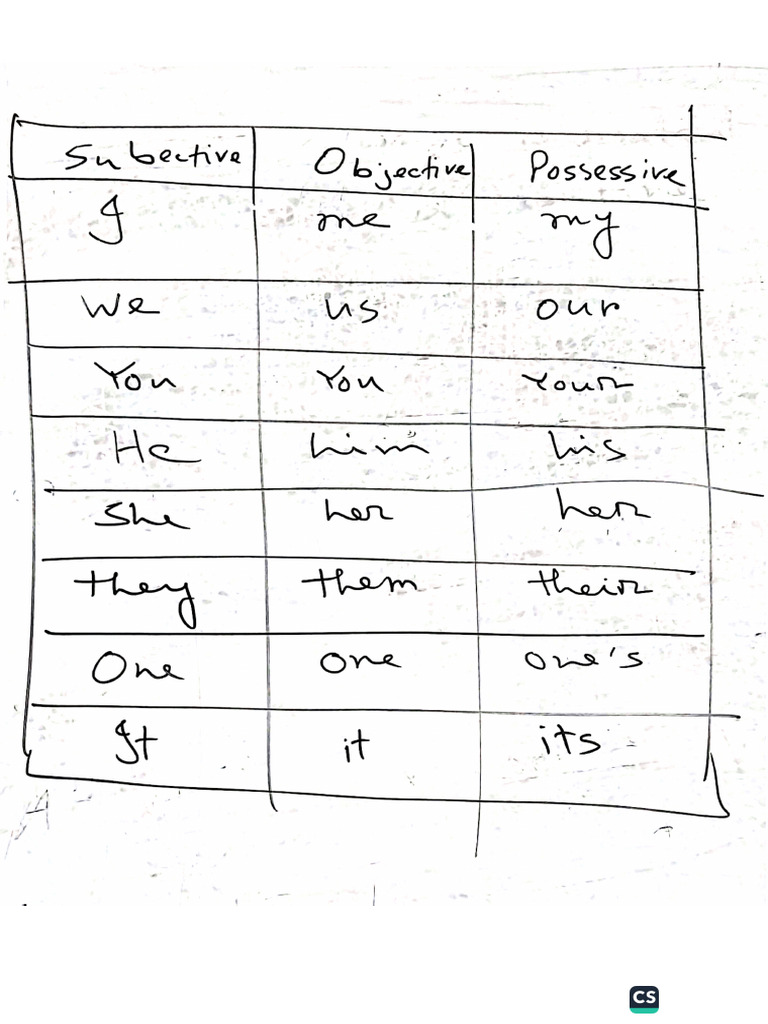 Subective Objective Possessive
I me my
We us our
You You Your
He him his
She her her
they them their
One one one's
It it its
A
CS